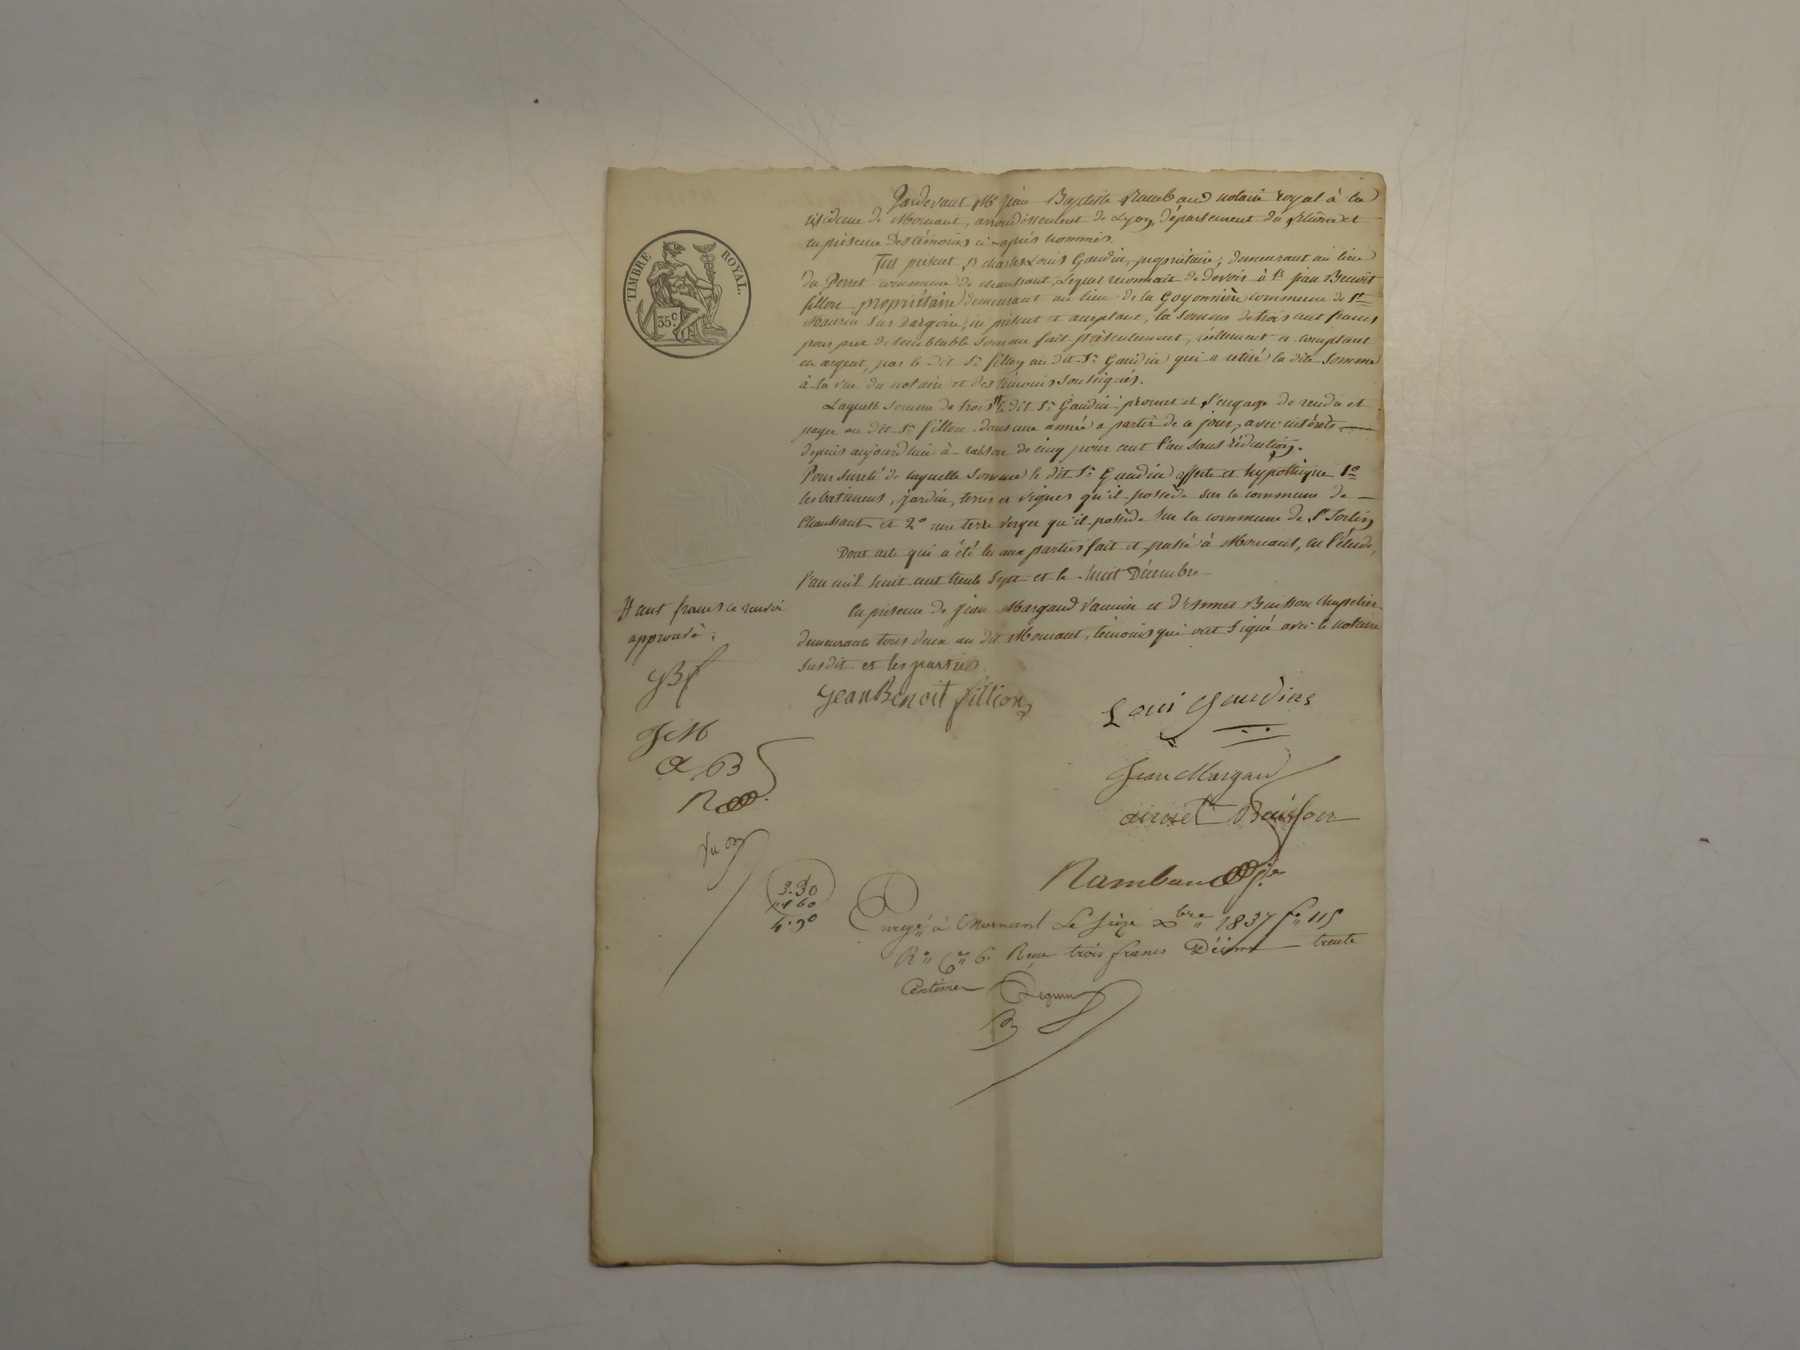 TIMBRE ROYAL.
35 c
Pardevant Me Jean Baptiste Rambaud notaire royal à la
résidence de Mornant, arrondissement de Lyon, département du Rhône et
en présence des témoins ci-après nommés.
fut présent Sr Charles Louis Gaudin, propriétaire, demeurant au lieu
du Perret commune de chaussant, Lequel reconnait de devoir à Sr jean Benoit
fillon propriétaire demeurant au lieu de la Goyonnière commune de St
Maurice sur dargoire, ici présent et acceptant, la somme de trois cent francs
pour prêt de semblable somme fait présentement, réellement et comptant
en argent, par le dit Sr fillon au dit Sr Gaudin qui a retiré la dite somme
à la vue du notaire et des témoins soussignés.
Laquelle somme de trois # le dit Sr Gaudin promet et s'engage de rendre et
payer au dit Sr fillon dans une année a partir de ce jour, avec intérêts
depuis aujourd'hui à raison de cinq pour cent l'an sans réduction.
Pour sureté de laquelle somme le dit Sr Gaudin affecte et hypothèque 1o
les batimens, jardin, terres et vignes qu'il possède sur la commune de
Chaussant et 2o une terre verger qu'il possède sur la commune de St Sorlin
Dont acte qui a été lu aux parties fait et passé à Mornant, en l'étude,
l'an mil huit cent trente sept et le huit Décembre
# cent francs ce renvoi
approuvé.
en présence de Jean Margaud et d'Ennemond Buisson chapelier
demeurants tous deux au dit Mornant, témoins qui ont signé avec le notaire
susdit et les parties.
JBf
Jean Benoit fillion
Louis Gaudin
JM
Jean Margaud
A B
Buisson
R
Rambaud
3.30
1 60
4.90
Enregé à Mornant Le seize Xbre 1837 fo 115
Ro Ce 6. Reçu trois francs Décime trente
Centimes